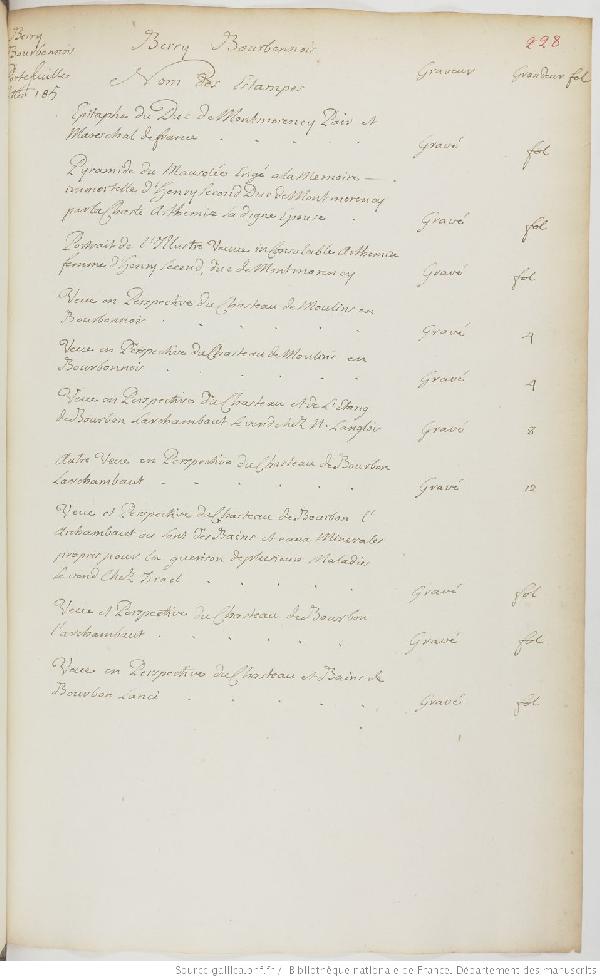 Berry
Bourbonnois
Portefeuilles
185
Berry Bourbonnois
228
Nom des Estampes
Graveur
Grandeur fol
Epitaphe du Duc de Montmorency Pair et
Mareschal de france
Gravé
fol
Pyramide du Mausolée Erigé a la Memoire
immortelle d'Henry second Duc de Montmorency
par la Chaste Arthemize sa digne Epouse
Gravé
fol
Portrait de l'Illustre Veuve inconsolable Arthemize
femme d'Henry second, duc de Montmorency
Gravé
fol
Veue en Perspective du Chasteau de Moulins en
Bourbonnois
Gravé
4
Veue en Perspective du Chasteau de Moulins en
Bourbonnois
Gravé
4
Veue en Perspective du Chasteau et de l'Etang
de Bourbon Larchambaut se vend chez N. Langlois
Gravé
8
Autre Veue en Perspective du Chasteau de Bourbon
Larchambaut
Gravé
12
Veue et Perspective du Chasteau de Bourbon l'
Archambaut ou sont des Bains et eaux Minerales
propres pour la guerison de plusieurs Maladies
se vend Chez Israel
Gravé
fol
Veue et Perspective du Chasteau de Bourbon
l'archambaut
Gravé
fol
Veue en Perspective du Chasteau et Bains de
Bourbon Lanci
Gravé
fol
Source gallica.bnf.fr / Bibliothèque nationale de France. Département des manuscrits